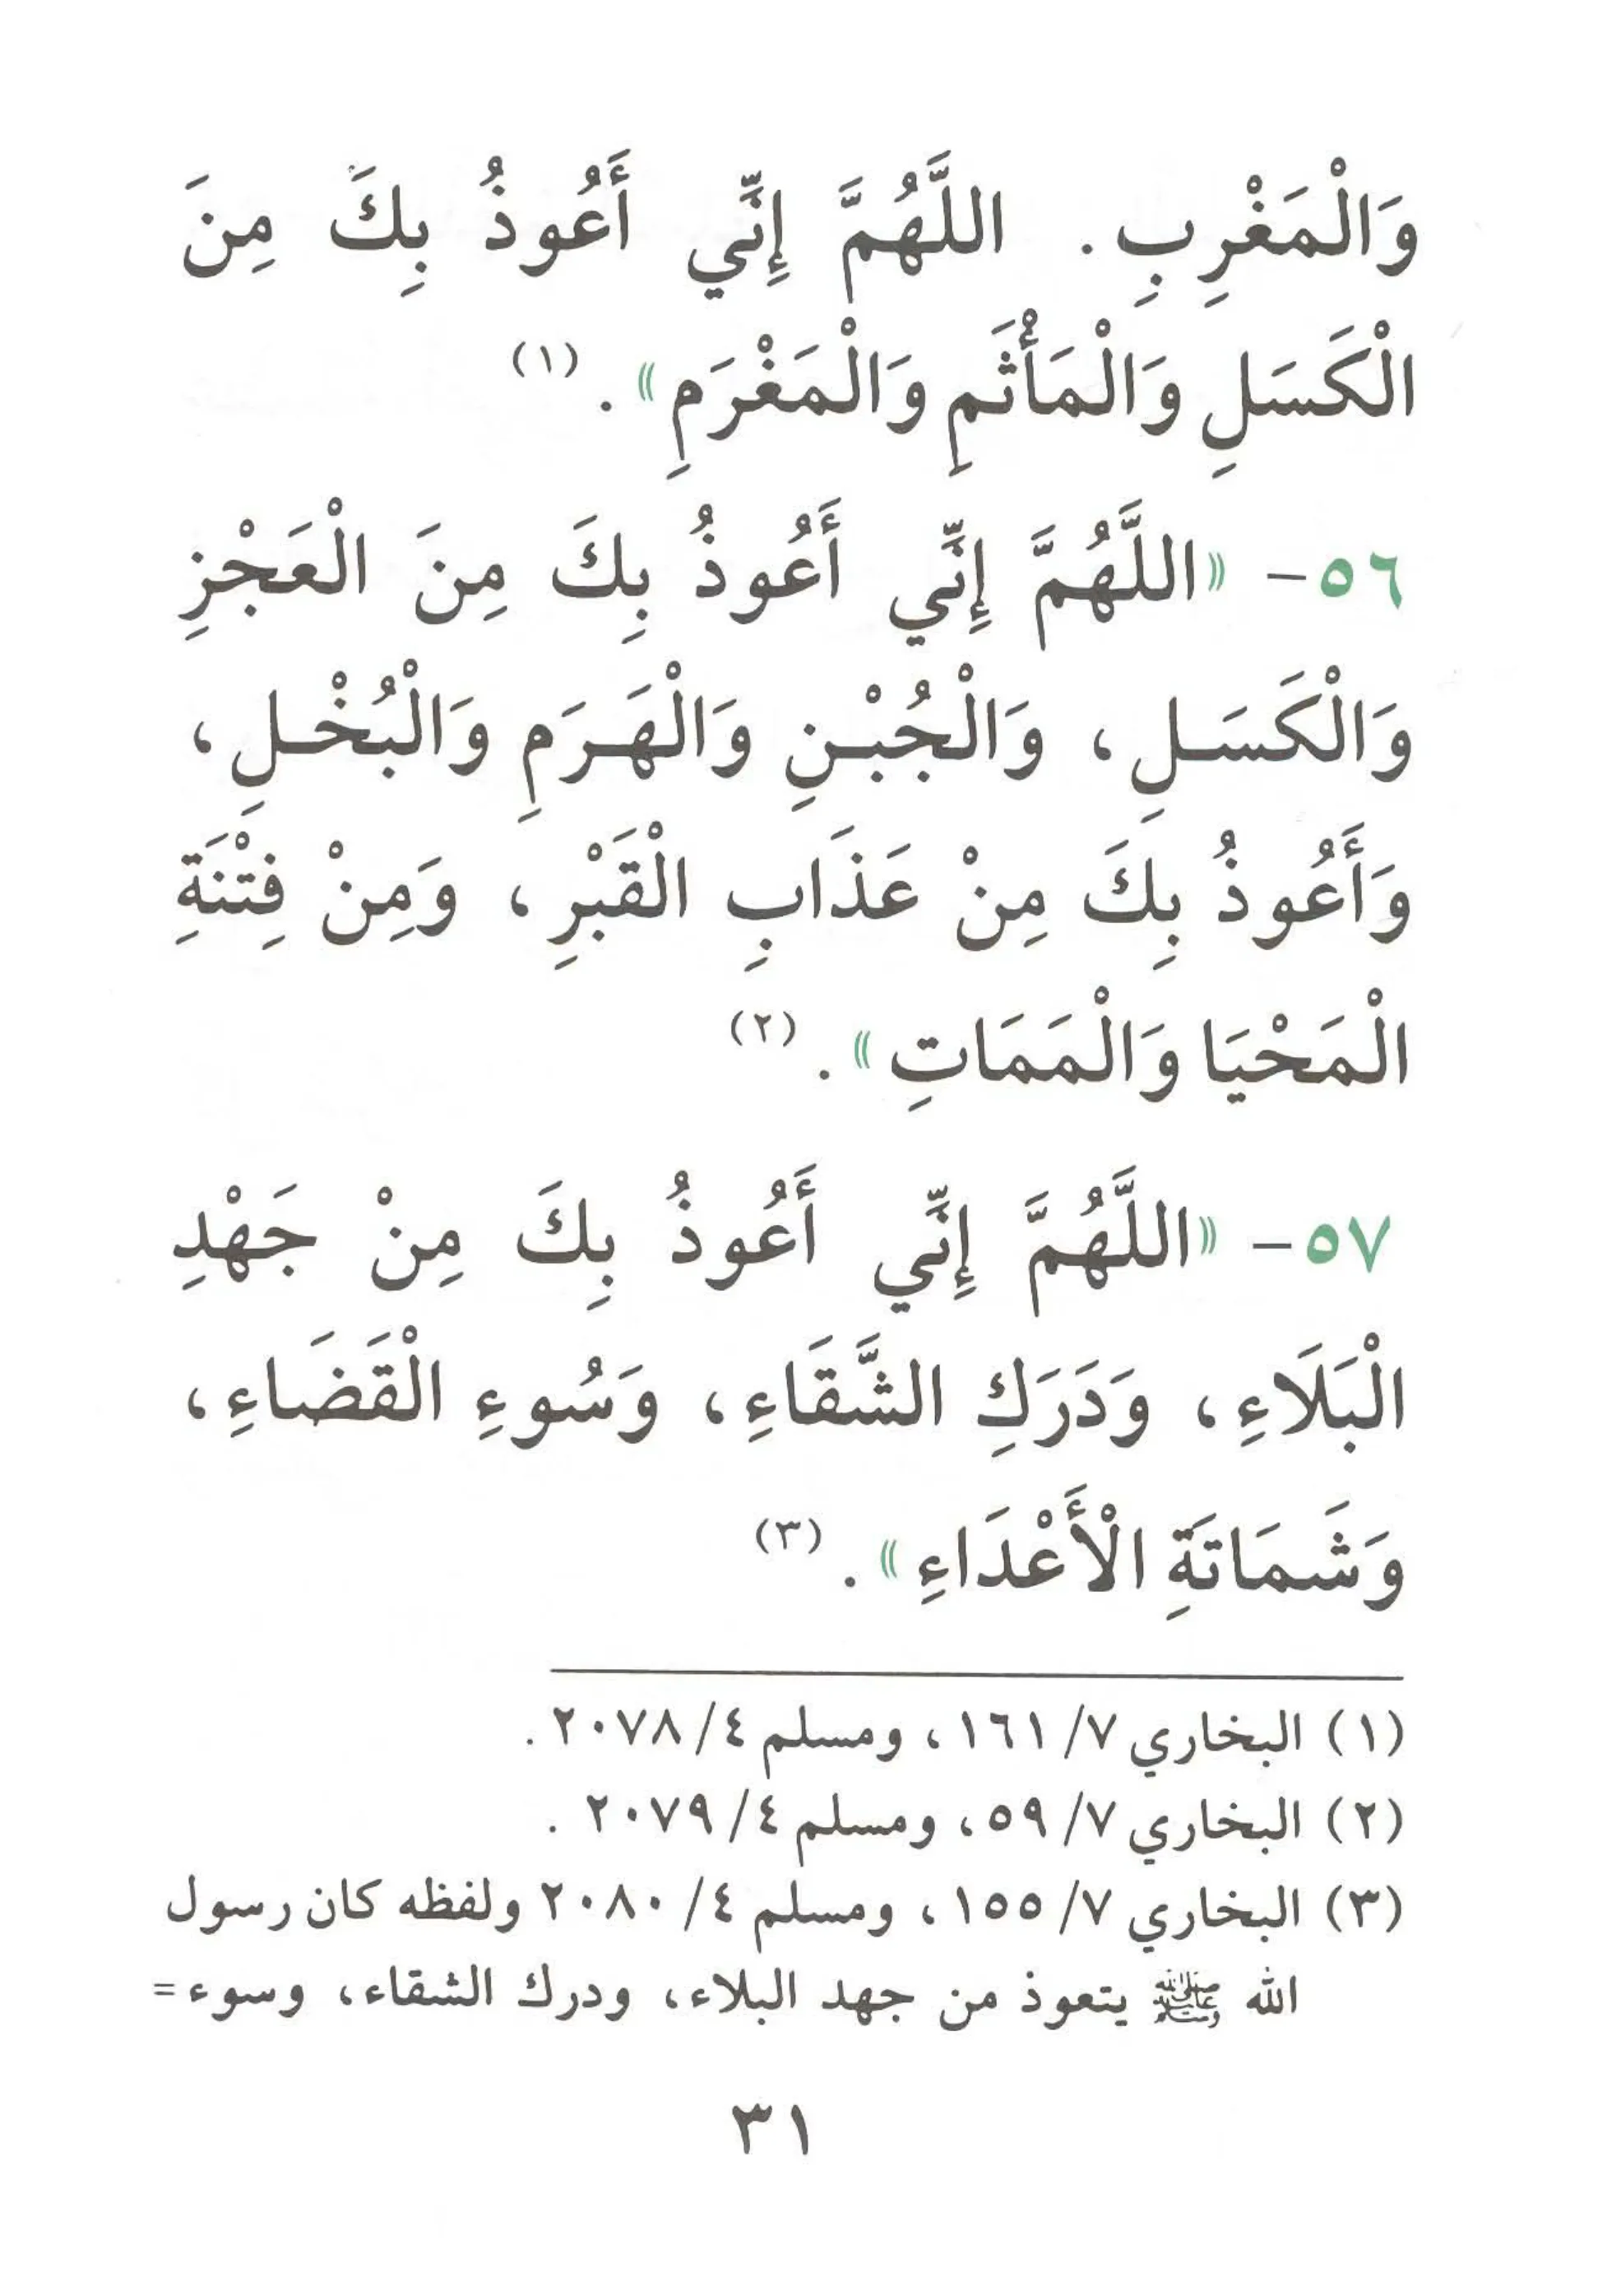 وَالْمَغْرِبِ. اللَّهُمَّ إِنِّي أَعُوذُ بِكَ مِنَ
الْكَسَلِ وَالْمَأْثَمِ وَالْمَغْرَمِ». (١)
٥٦- «اللَّهُمَّ إِنِّي أَعُوذُ بِكَ مِنَ الْعَجْزِ
وَالْكَسَـلِ، وَالْجُبْـنِ وَالْهَـرَمِ وَالْبُخْـلِ،
وَأَعُوذُ بِكَ مِنْ عَذَابِ الْقَبْرِ، وَمِنْ فِتْنَةِ
الْمَحْيَا وَالْمَمَاتِ». (٢)
٥٧- «اللَّهُمَّ إِنِّي أَعُوذُ بِكَ مِنْ جَهْدِ
الْبَلَاءِ، وَدَرَكِ الشَّقَاءِ، وَسُوءِ الْقَضَاءِ،
وَشَمَاتَةِ الْأَعْدَاءِ». (٣)
(١) البخاري ٧/ ١٦١، ومسلم ٤/ ٢٠٧٨.
(٢) البخاري ٧/ ٥٩، ومسلم ٤/ ٢٠٧٩.
(٣) البخاري ٧/ ١٥٥، ومسلم ٤/ ٢٠٨٠ ولفظه كان رسول
الله ﷺ يتعوذ من جهد البلاء، ودرك الشقاء، وسوء =
٣١